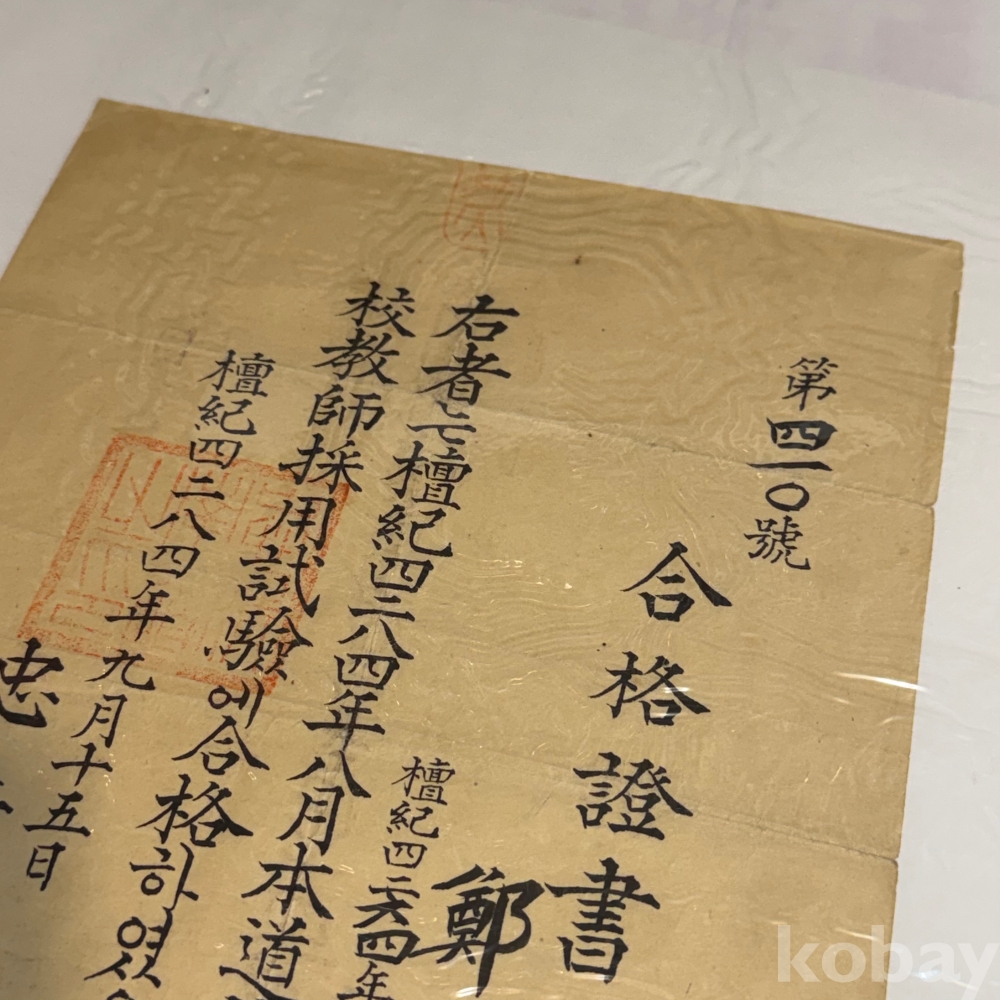 第四一〇號
合格證書
鄭
檀紀四二六四年
右者는檀紀四二八四年八月本道
校教師採用試驗에合格하였
檀紀四二八四年九月十五日
忠
kobay